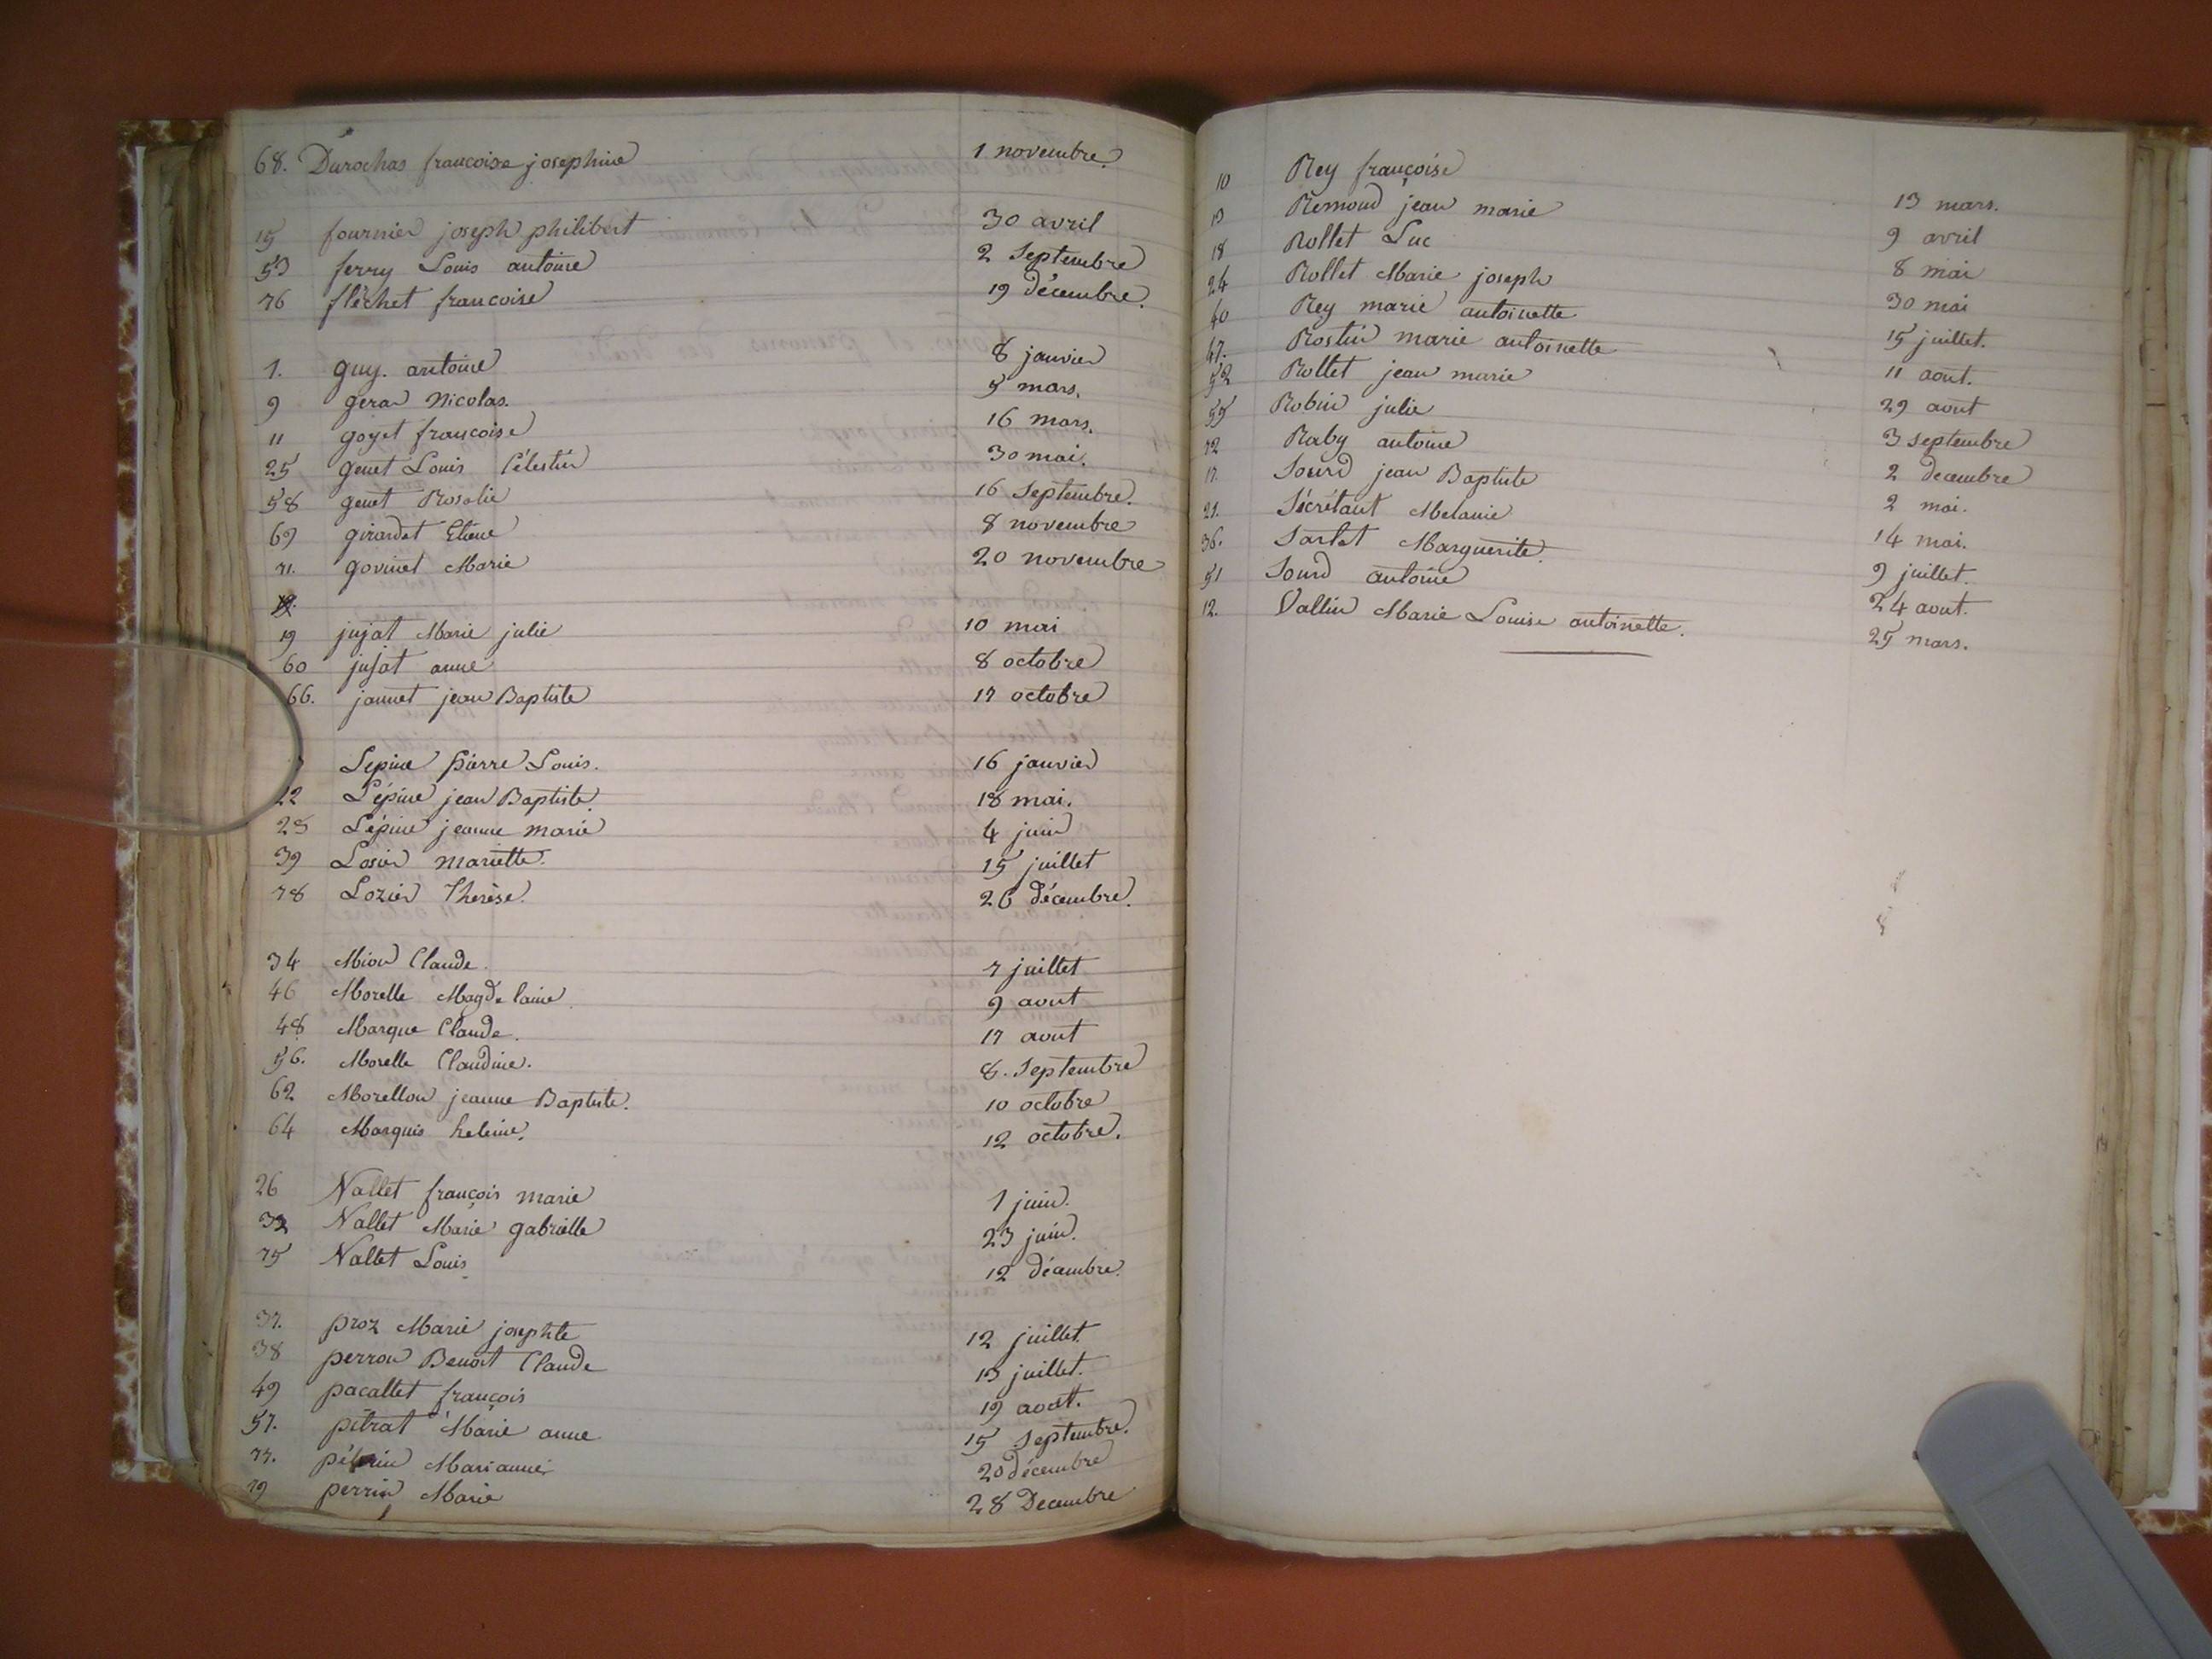 68. Durochas francoise josephine 1 novembre.
15 fournier joseph philibert 30 avril
53 ferry Louis antoine 2 Septembre
76 fléchet francoise 19 décembre.
1. guy. antoine 8 janvier
9 gerar Nicolas. 5 mars.
11 goyet françoise 16 mars.
25 genet Louis Célestin 30 mai.
58 genet Rosalie 16 Septembre.
69 girardet Etiene 8 novembre
71. govinet Marie 20 novembre
19 jujat Marie julie 10 mai
60 jujat anne 8 octobre
66. jannet jean Baptiste 17 octobre
Lepine pierre Louis. 16 janvier
22 Lépine jean Baptiste. 18 mai.
28 Lépine jeanne marie 4 juin
39 Losier mariette. 15 juillet
78 Lozier Therèse. 26 décembre.
34 Mion Claude. 7 juillet
46 Morelle Magdelaine 9 aout
48 Marque Claude. 17 aout
56. Morelle Claudine. 8. Septembre
62 Morellon jeanne Baptiste. 10 octobre
64 Marquis heleine. 12 octobre.
26 Nallet françois marie 1 juin.
32 Nallet Marie gabrielle 23 juin.
75 Nallet Louis 12 décembre.
37. proz Marie josephte 12 juillet.
38 perron Benoit Claude 13 juillet.
49 pacallet françois 19 août.
57. pitrat Marie anne 15 Septembre.
77. Marianne 20 décembre
79 perrin Marie 28 Decembre
10 Rey françoise
13 Remond jean marie 13 mars.
18 Rollet Luc 9 avril
24 Rollet Marie joseph 8 mai
40 Rey marie antoinette 30 mai
47. Rostin marie antoinette 15 juillet.
52 Rollet jean marie 11 aout.
55 Robin julie 29 aout
72 Raby antoine 3 septembre
17. Sourd jean Baptiste 2 decembre
21. Sécrétant Melanie 2 mai.
36. Sarlat Marguerite. 14 mai.
51 Sourd antoine 9 juillet.
12. Vallin Marie Louise antoinette. 24 aout.
25 mars.